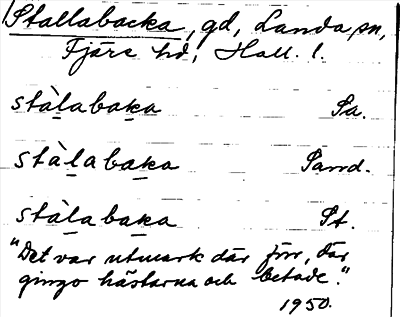 Stallabacka, gd, Landa sn,
Fjäre hd, Hall. l.
stàlabaka Sa.
stàlabaka Sand.
stàlabaka St.
"Det var utmark där förr, där
gingo hästarna och betade."
1950.